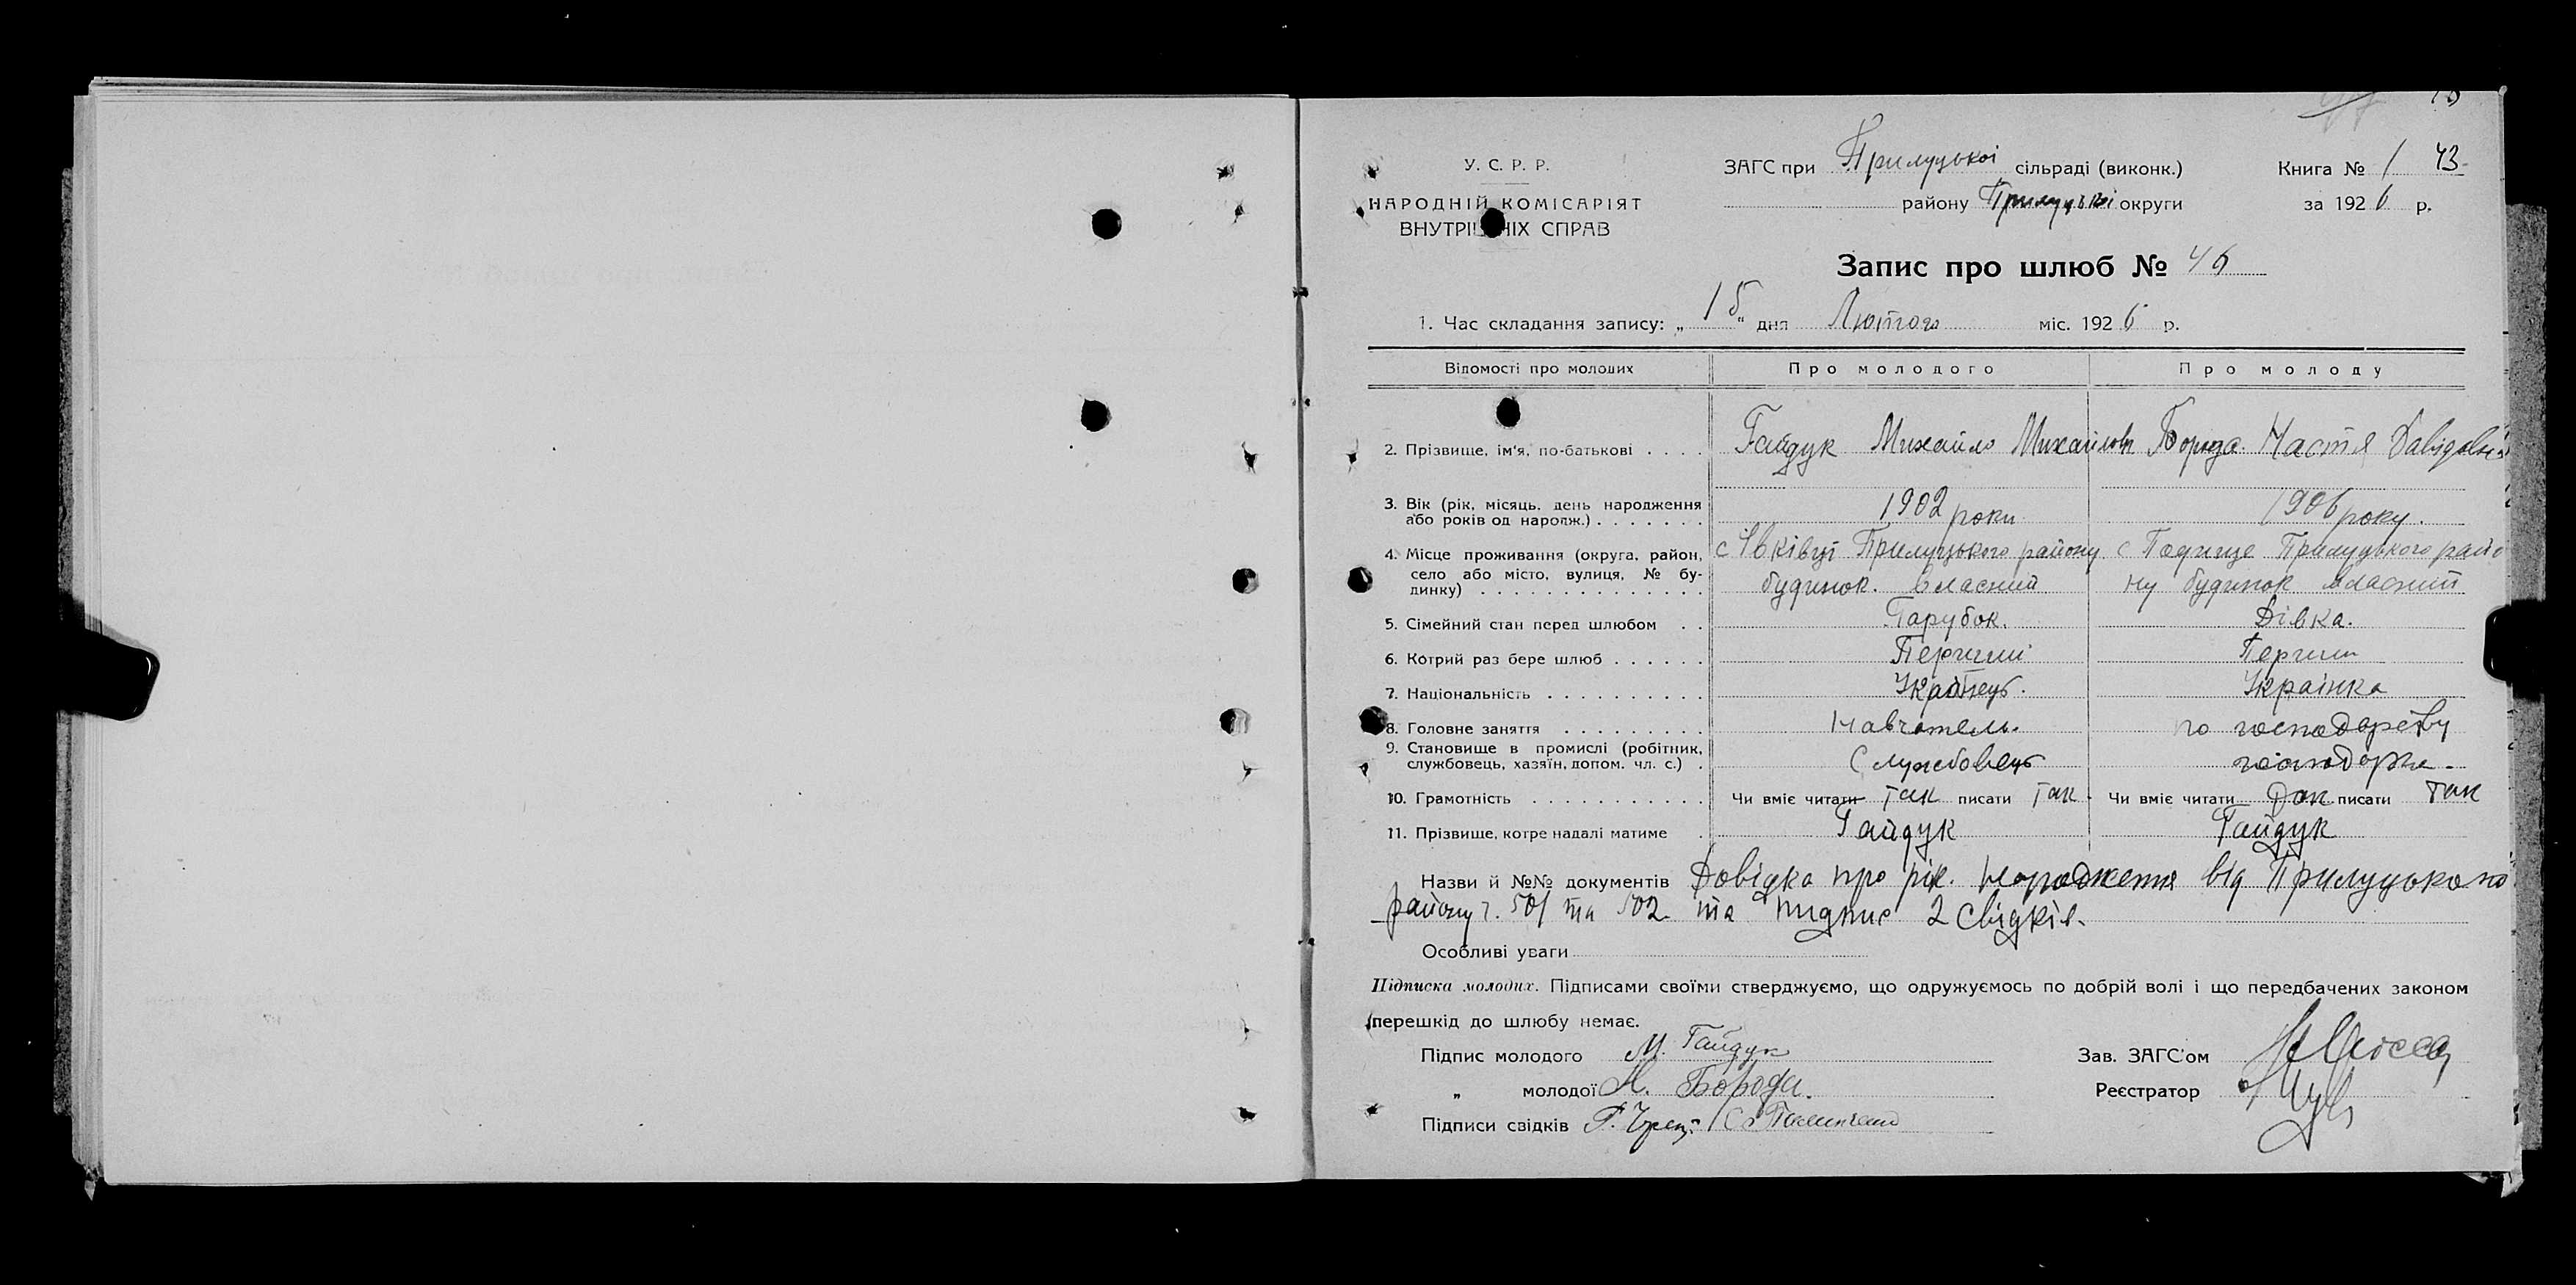 У. С. Р. Р.
НАРОДНІЙ КОМІСАРІЯТ
ВНУТРІШНІХ СПРАВ
ЗАГС при Прилуцької сільраді (виконк.)
району Прилуцької округи
Книга № 1 43
за 1926 р.
Запис про шлюб № 46
1. Час складання запису: „15“ дня Лютого міс. 1926 р.
Відомості про молодих Про молодого Про молоду
2. Прізвище, ім'я, по-батькові . . . . Гайдук Михайло Михайлов Борода Настя Давідовна
3. Вік (рік, місяць, день народження 1902 роки 1906 року.
або років од народж.) . . . . . . .
4. Місце проживання (округа, район, с Івківці Прилуцького району с Подище Прилуцького райо
село або місто, вулиця, № бу- будинок. власний ну будинок власний
динку) . . . . . . . . . . . . . .
5. Сімейний стан перед шлюбом . . Парубок. Дівка.
6. Котрий раз бере шлюб . . . . . . Перший Перший
7. Національність . . . . . . . . . . Українець. Українка
8. Головне заняття . . . . . . . . . Навчатель. по господарству
9. Становище в промислі (робітник, Службовець
службовець, хазяїн, допом. чл. с.) .
10. Грамотність . . . . . . . . . . . Чи вміє читати так писати так. Чи вміє читати писати так
11. Прізвище, котре надалі матиме . Гайдук Гайдук
Назви й №№ документів Довідка про рік. народження від Прилуцького
району ч. 501 та 502 та підпис 2 свідків.
Особливі уваги
Підписка молодих. Підписами своїми стверджуємо, що одружуємось по добрій волі і що передбачених законом
перешкід до шлюбу немає.
Підпис молодого М. Гайдук Зав. ЗАГС'ом
„ молодої Н. Борода. Реєстратор
Підписи свідків